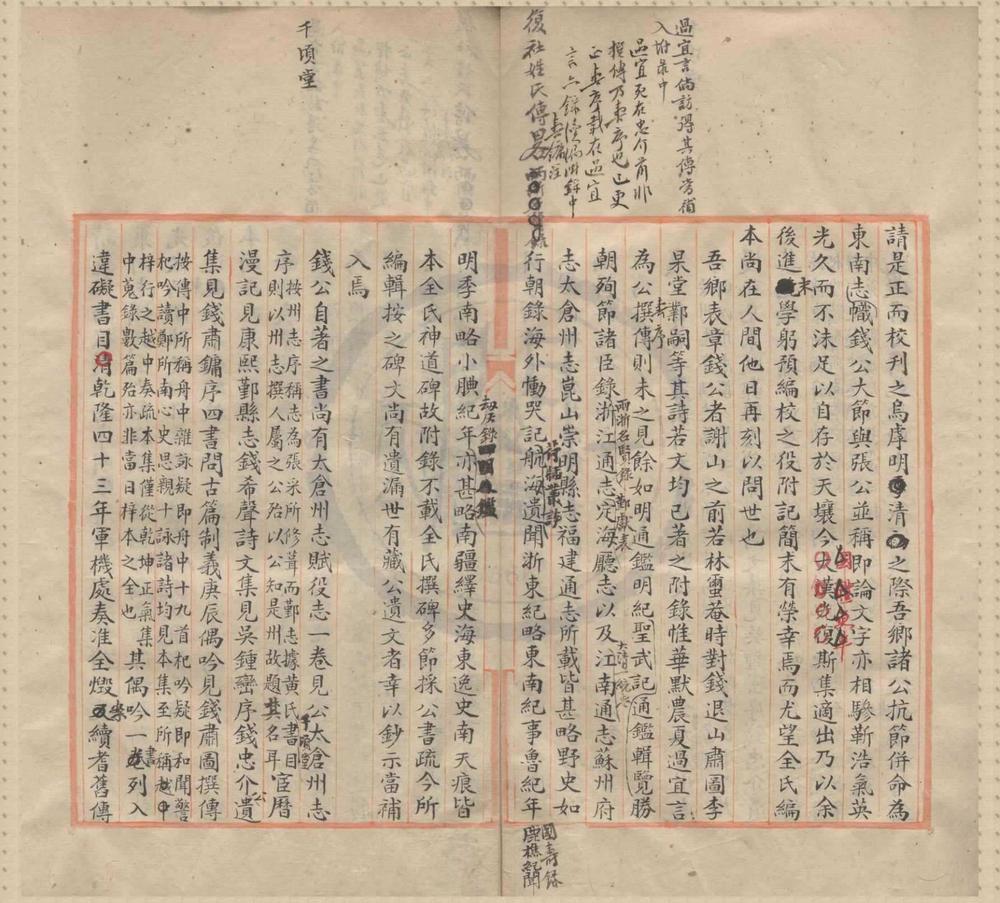 過宜言倘訪得其傳當補
入附录中
過宜死在忠介前非
撰傳乃表序也已更
正表序載在過宜
言六錄
復社姓氏傳畧
請是正而校刊之烏虖明清之際吾鄉諸公抗節併命為
東南志幟錢公大節與張公並稱即論文字亦相驂靳浩氣英
光久而不沬足以自存於天壤今斯集適出乃以余
後進末學躬預編校之役附記簡末有榮幸焉而尤望全氏編
本尚在人間他日再刻以問世也
吾鄉表章錢公者謝山之前若林霔菴時對錢退山肅圖李
杲堂鄴嗣等其詩若文均已著之附錄惟華默農夏過宜言
為公撰傳表序則未之見餘如明通鑑明紀聖武記通鑑輯覽勝
朝殉節諸臣錄浙江通志定海廳志以及江南通志蘇州府
兩浙名賢錄
志太倉州志崑山崇明縣志福建通志所載皆甚略野史如
行朝錄海外慟哭記航海遺聞浙東紀略東南紀事魯紀年
荷牐叢談
國壽錄
鹿樵紀聞
明季南略小腆紀年亦甚略南疆繹史海東逸史南天痕皆
劫灰錄
本全氏神道碑故附錄不載全氏撰碑多節採公書疏今所
編輯按之碑文尚有遺漏世有藏公遺文者幸以鈔示當補
入焉
千頃堂
錢公自著之書尚有太倉州志賦役志一卷見公太倉州志
序按州志序稱志為張采所修葺而鄞志據黃氏千頃堂書目宦曆
則以州志撰人屬之公殆以公知是州故題其名耳
漫記見康熙鄞縣志錢希聲詩文集見吳鍾巒序錢忠介公遺
集見錢肅鏞序四書問古篇制義庚辰偶吟見錢肅圖撰傳
按傳中所稱舟中雜詠疑即舟中十九首杞吟疑即和聞警
杞吟讀鄭所南心史思親十詠諸詩均見本集至所稱
梓行之越中奏疏本集僅從乾坤正氣集
中蒐錄數篇殆亦非當日梓本之全也
其偶吟一書列入
違礙書目清乾隆四十三年軍機處奏准全燬案續耆舊傳